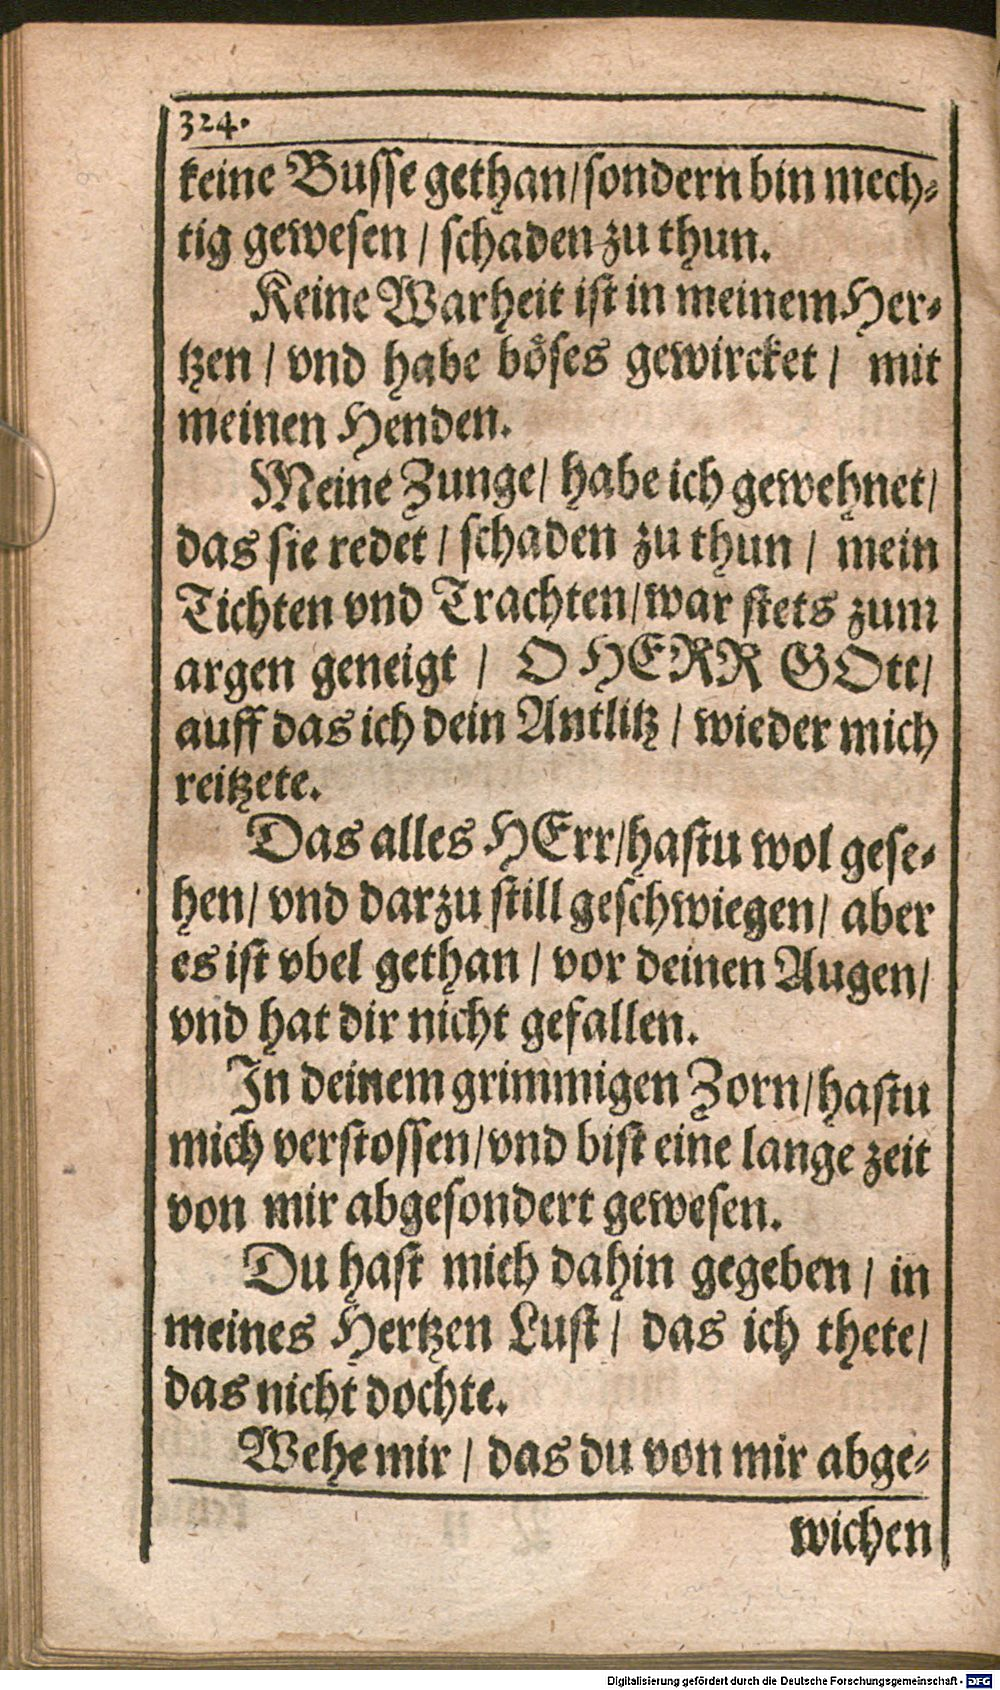 324.
keine Busse gethan/sondern bin mech-
tig gewesen / schaden zu thun.
Keine Warheit ist in meinem Her-
tzen / vnd habe böses gewircket / mit
meinen Henden.
Meine Zunge/ habe ich gewehnet/
das sie redet / schaden zu thun / mein
Tichten vnd Trachten/war stets zum
argen geneigt / O HERR GOtt/
auff das ich dein Antlitz / wieder mich
reitzete.
Das alles HErr/hastu wol gese-
hen/ vnd darzu still geschwiegen/ aber
es ist vbel gethan / vor deinen Augen/
vnd hat dir nicht gefallen.
In deinem grimmigen Zorn/hastu
mich verstossen/vnd bist eine lange zeit
von mir abgesondert gewesen.
Du hast mich dahin gegeben / in
meines Hertzen Lust / das ich thete/
das nicht dochte.
Wehe mir / das du von mir abge-
wichen
Digitalisierung gefördert durch die Deutsche Forschungsgemeinschaft - DFG